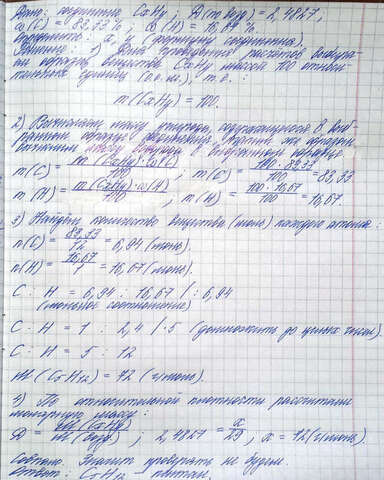 Дано: соединение CxHy; D(по возд) = 2,4827,
ω(C) = 83,33 %, ω(H) = 16,67 %.
Решение: 1) Для проведения расчётов выбира-
ем образец вещества CxHy массой 100 относи-
тельных единиц (о.е.м.), т.е.:
m(CxHy) = 100.
2) Вычисляем массу углерода, содержащегося в выб-
ранном образце
массу водорода в выбранном образце
m(C) = m(CxHy)·ω(C) / 100 ; m(C) = 100·83,33 / 100 = 83,33
m(H) = m(CxHy)·ω(H) / 100 ; m(H) = 100·16,67 / 100 = 16,67
3) Найдём количество вещества (моль) каждого атома:
n(C) = 83,33 / 12 = 6,94 (моль).
n(H) = 16,67 / 1 = 16,67 (моль).
C : H = 6,94 : 16,67 / : 6,94
(мольное соотношение)
C : H = 1 : 2,4 / ·5 (домножить до целых чисел).
C : H = 5 : 12
M(C5H12) = 72 (г/моль).
4) По относительной плотности рассчитаем
молярную массу:
D = M(CxHy) / M(возд) ; 2,4827 = x / 29 , x = 72 (г/моль)
Совпало. Значит проверять не будем.
Ответ: C5H12 – пентан.